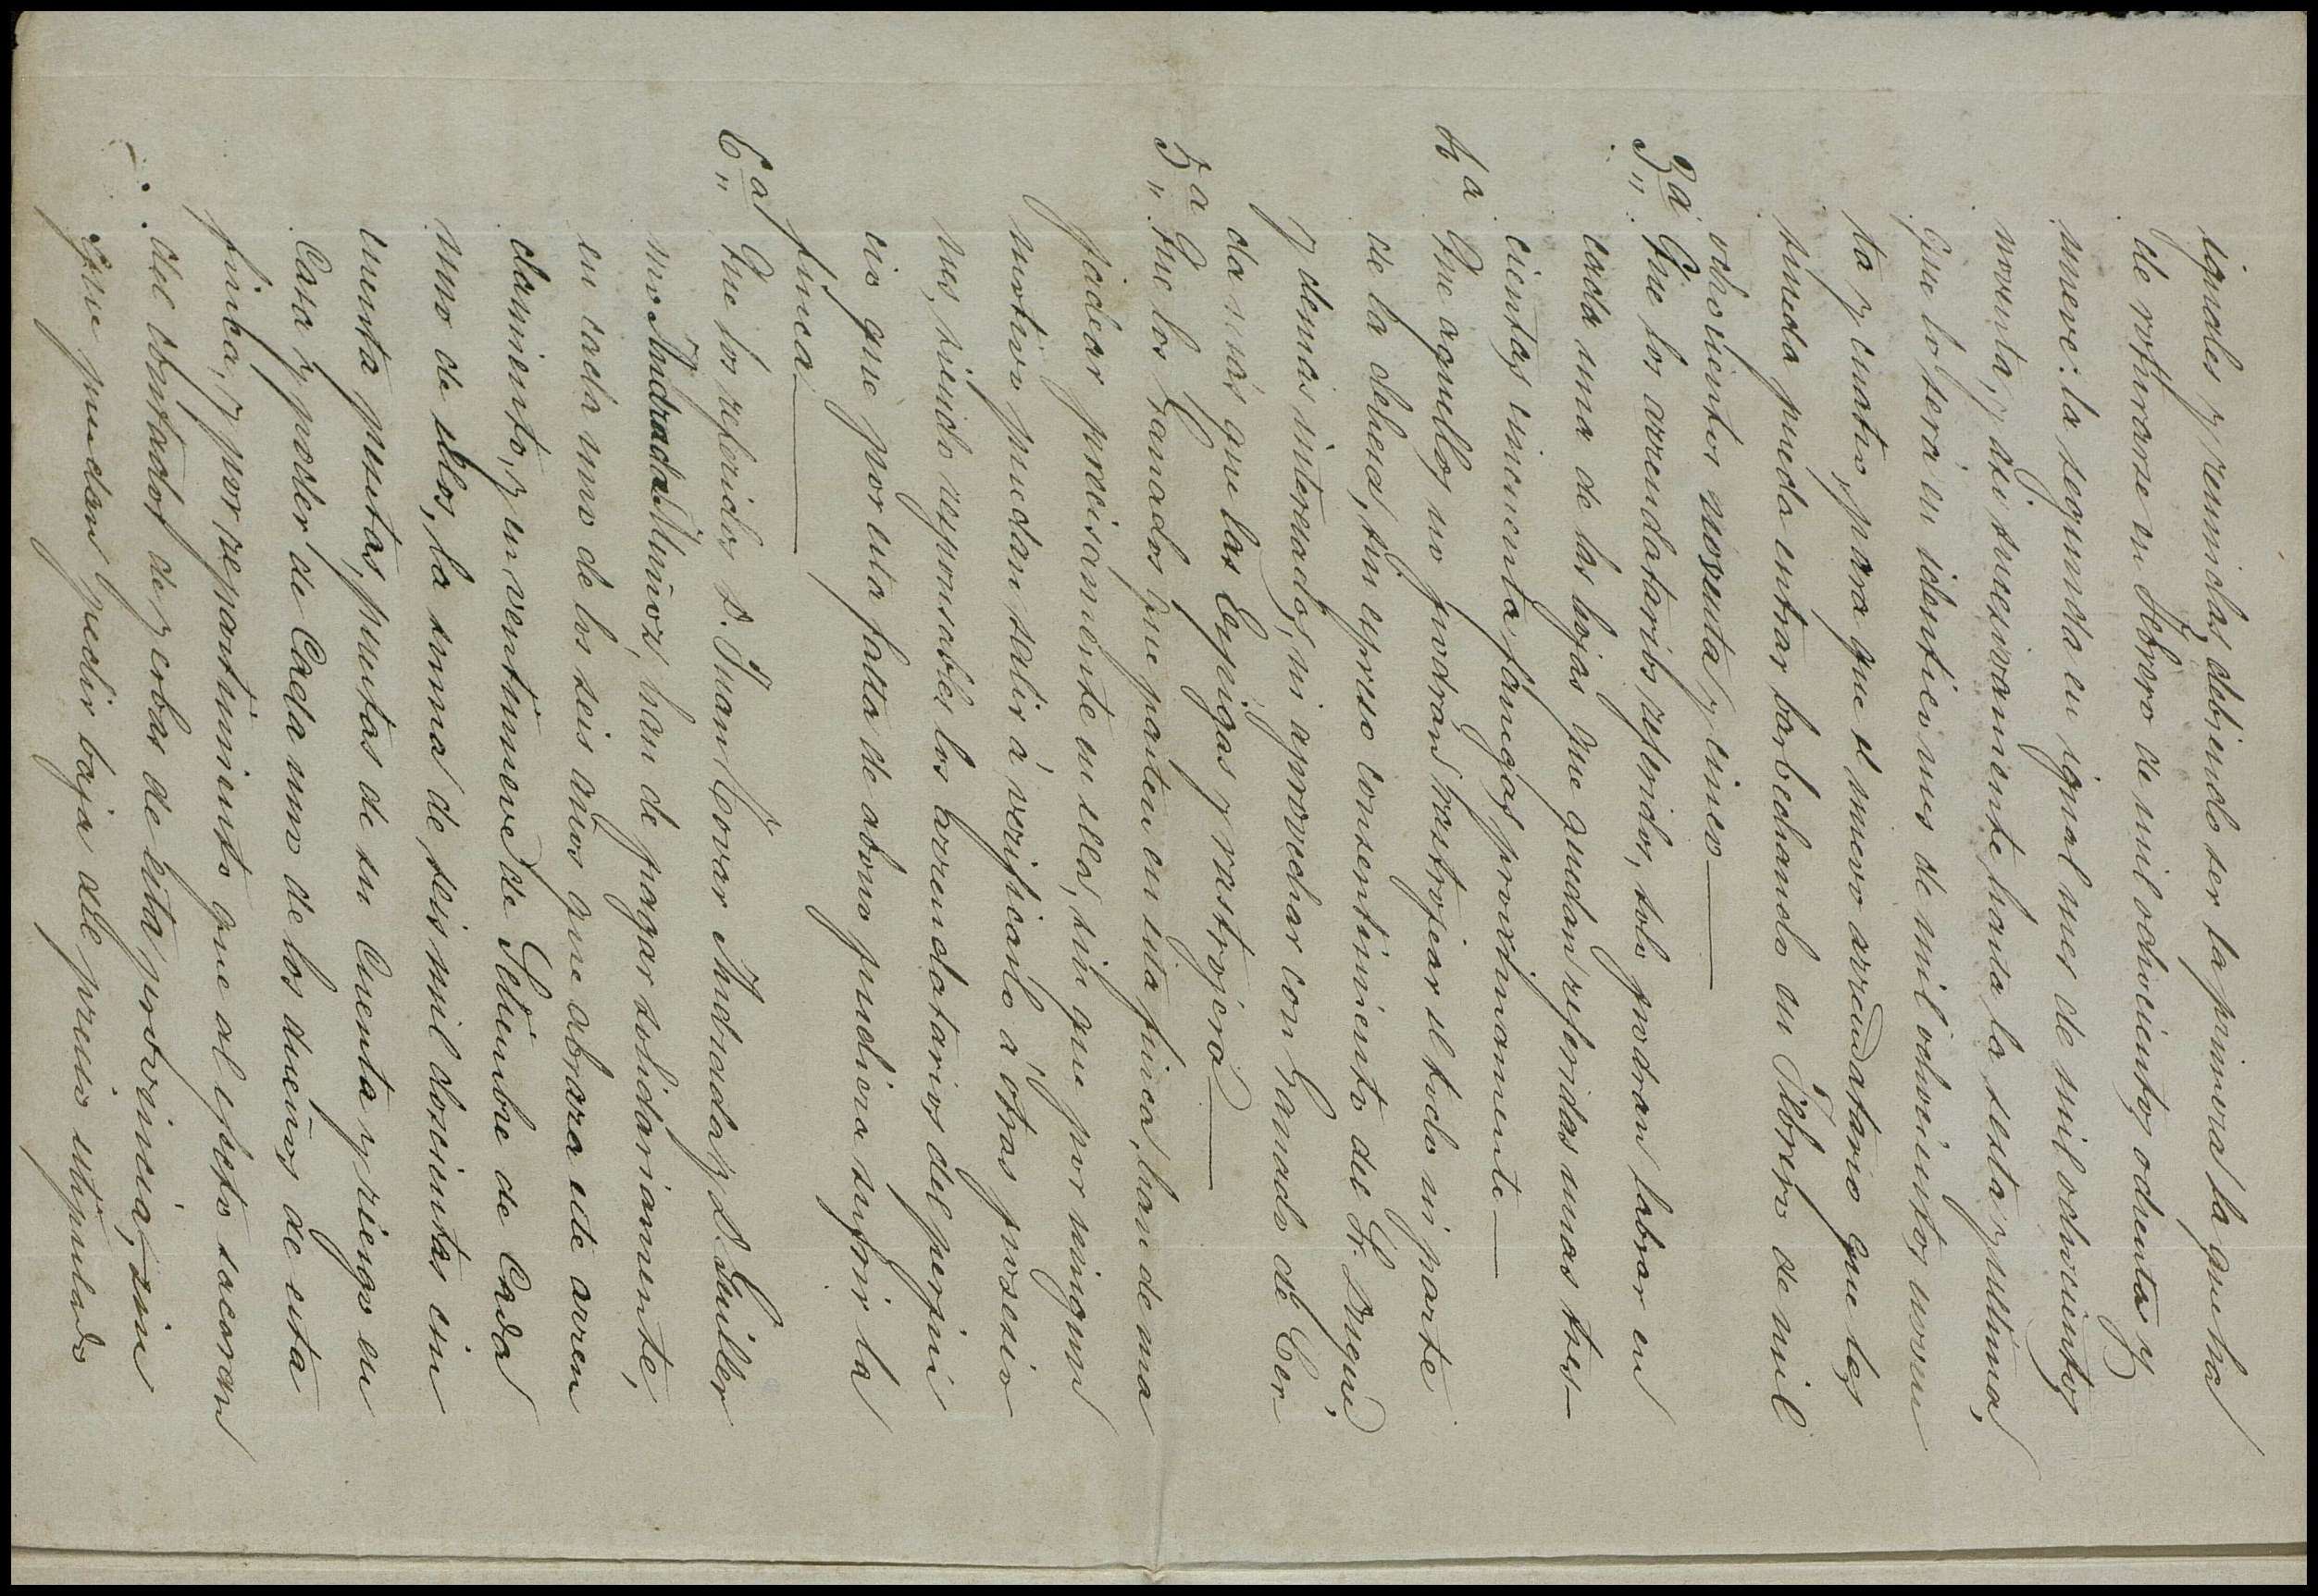 iguales y reunidas, debiendo ser la primera la que ha
de roturarse en Febrero de mil ochocientos ochenta y
nueve: la segunda en igual mes de mil ochocientos
noventa, y asi sucesivamente hasta la sesta y ultima,
que lo será en identico mes de mil ochocientos noven
ta y cuatro, para que el nuevo arrendatario que les
suceda pueda entrar barbechando en Febrero de mil
ochocientos nosenta y cinco
3ª Que los arrendatarios referidos, solo podran labrar en
cada una de las hojas que quedan referidas unas tres-
cientas cincuenta fanegas proximamente
4ª Que aquellos no podrán rastrojear el todo ni parte
de la dehesa, sin espreso consentimiento del Sr. Dueño,
y demas interesados, ni aprovechar con Ganado de Cer
da mas que las Espigas y rastrojera
5ª Que los Ganados que pasten en esta finca, han de ma
jadear precisamente en ella, sin que por ningun
motivo puedan salir á verificarlo á otras posesio
nes, siendo responsables los arrendatarios del perjui
cio que por esta falta de abono pudiera sufrir la
finca
6ª Que los referidos D. Juan Tovar Andrada y D. Guiller
mo Andrada Muñoz, han de pagar solidariamente,
en cada uno de los seis años que abraza este arren
damiento, y en veintinueve de Setiembre de Cada
uno de ellos, la suma de seis mil doscientas cin
cuenta pesetas, puestas de su Cuenta y riesgo en
Casa y poder de Cada uno de los dueños de esta
finca, y por repartimiento que al efecto sacaran
del Contador de yerbas de esta provincia, sin
que puedan pedir baja del precio estipulado